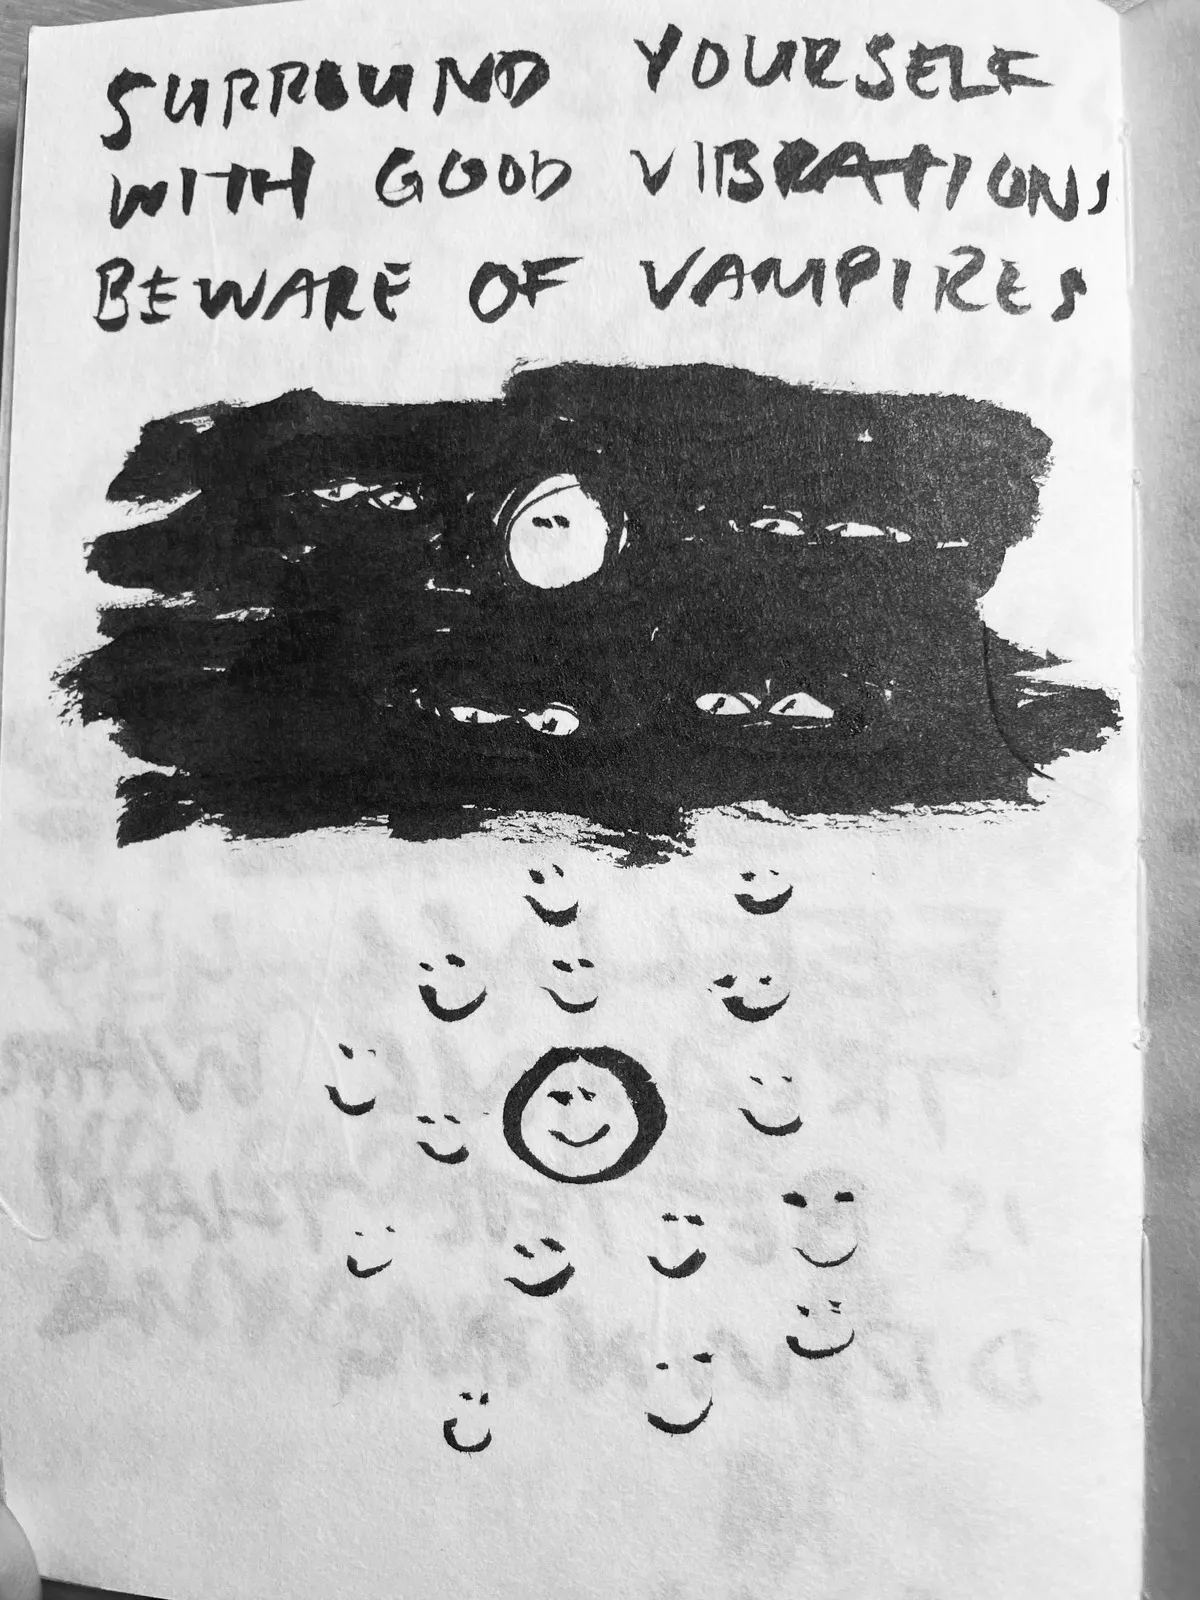 SURROUND YOURSELF
WITH GOOD VIBRATIONS
BEWARE OF VAMPIRES